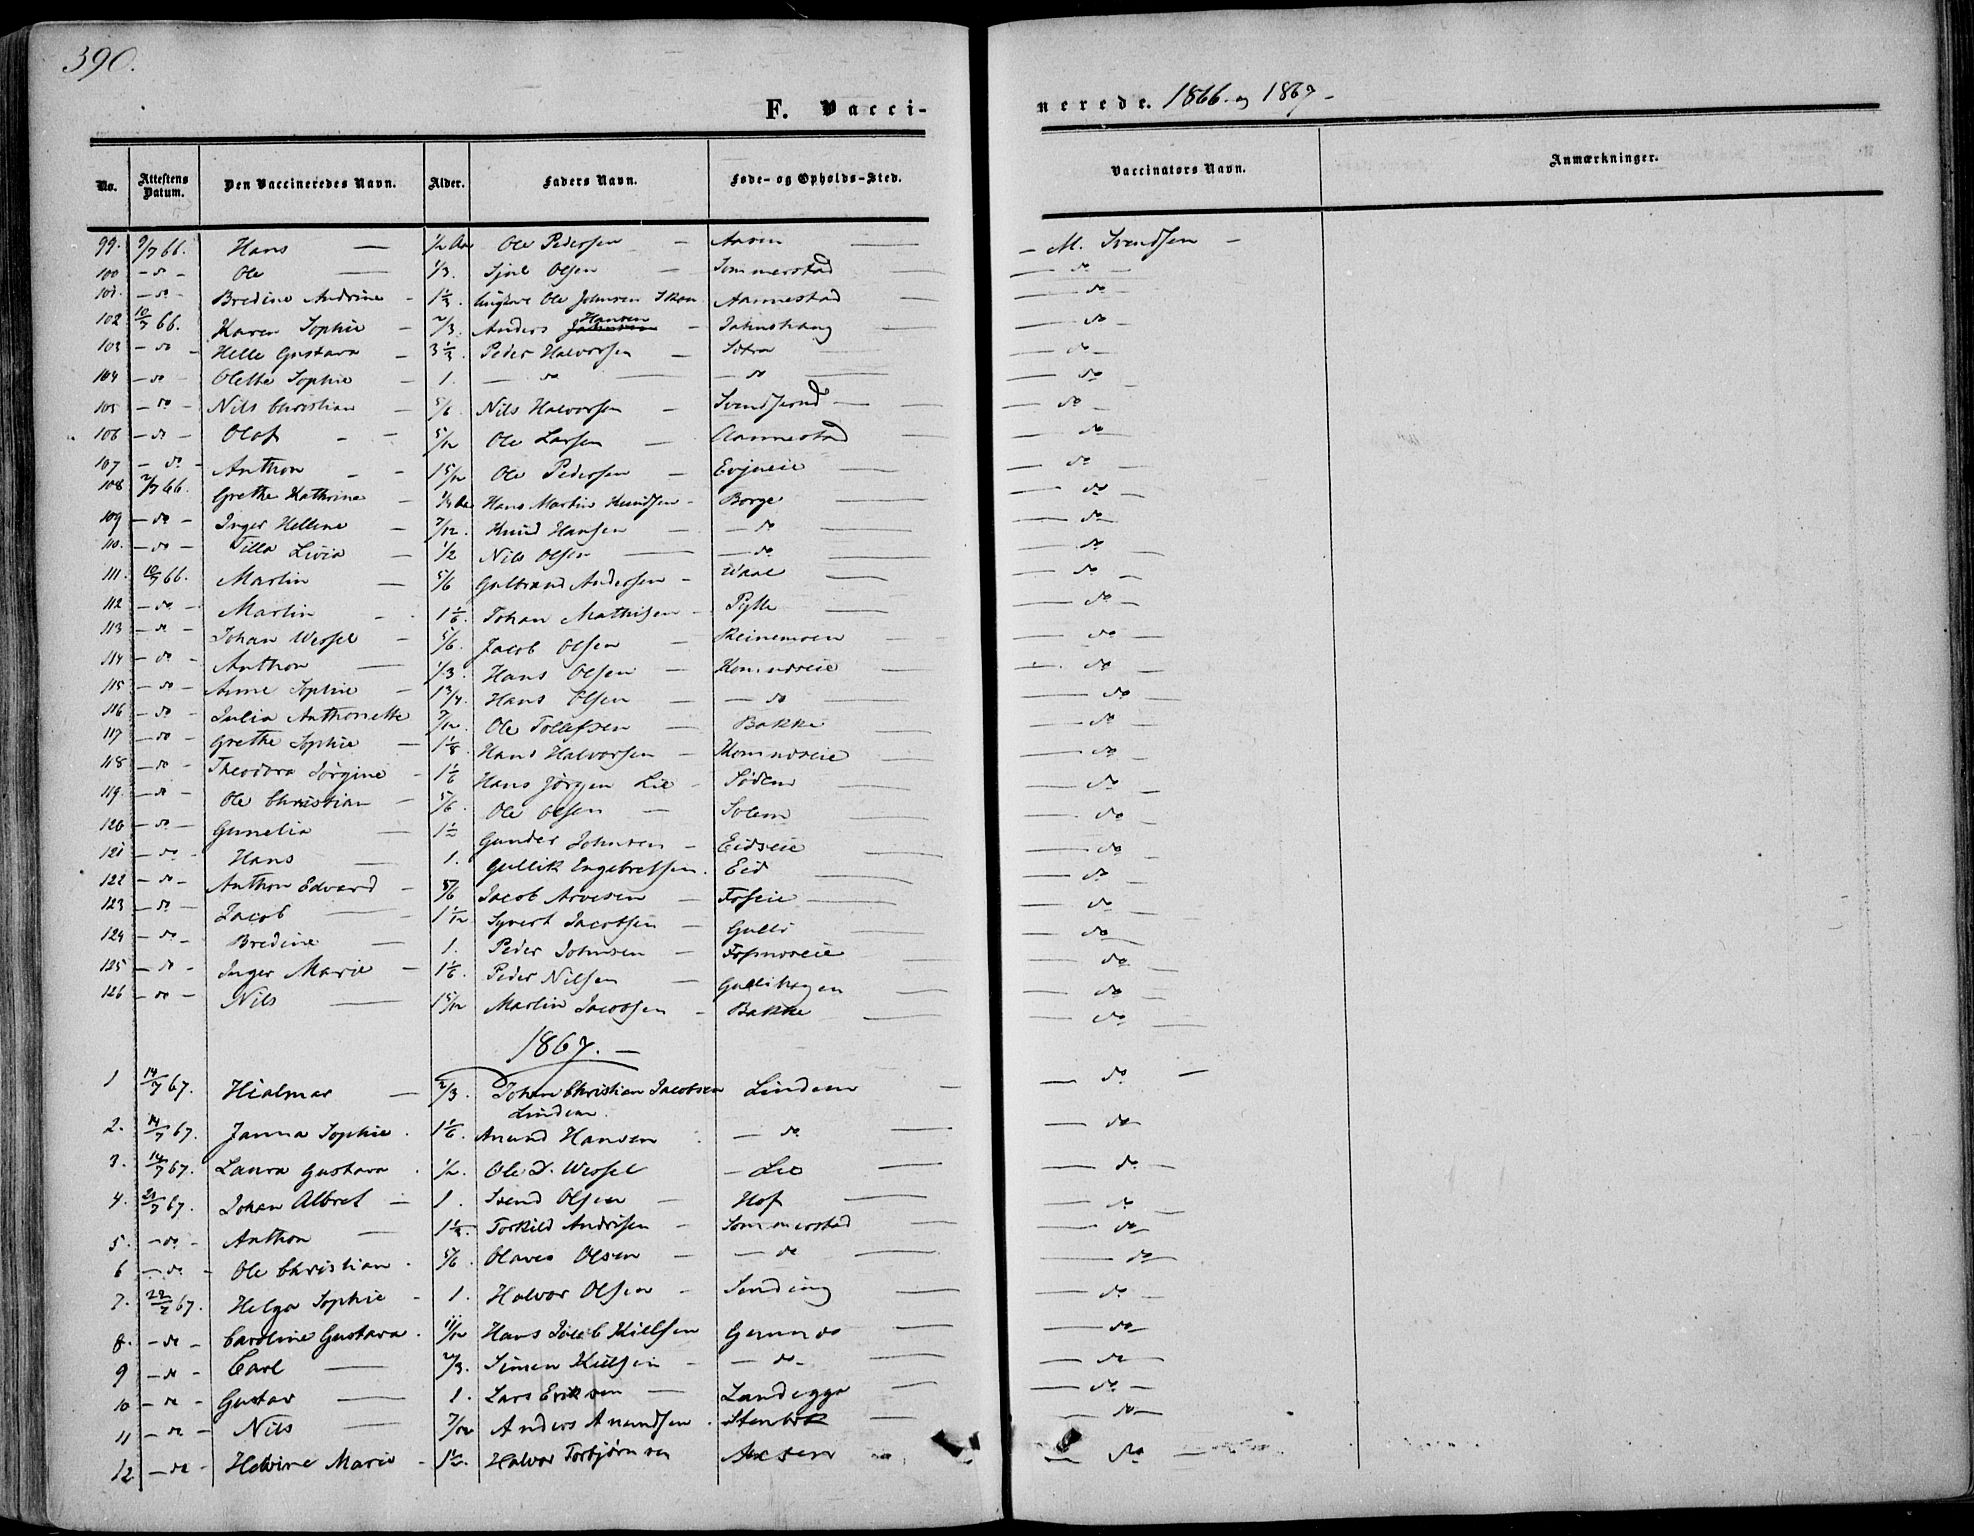 390.
F. Vaccinerede. 1866 og 1867 -
No. Attestens Datum. Den Vaccineredes Navn. Alder. Faders Navn. Føde- og Opholds-Sted. Vaccinators Navn. Anmærkninger.
99. 9/7 66. Hans — 1/2 Ole Pedersen - — - M. Svendsen -
100 - do - Ole — 1/3. Olsen - Sommerstad — do -
101. - do - Bredine Andrine - 1 1/3. Ole Johnsen Aannestad — do -
102 10/7 66. Karen Sophie - 2/3. Anders Hansen - — do -
103 - do - Helle Gustava - 3 1/3. Peder Halvorsen - — do -
104 - do - Olette Sophie - 1. — do — - do — do -
105 - do - Nils Christian - 5/6. Nils Halvorsen - — do -
106 - do - Olaf - - 5/12 Ole Larsen - Aannestad — do
107 - do - Anthon - - 1 5/12 Ole Pedersen - Evjueie — do -
108 66. Grethe Kathrine - Hans Martin Knudsen - Borge — do -
109 - do - Inger Helline - 7/12. Knud Hansen - - do — do -
110. - do - Tilla Livia - 1/2 Nils Olsen — - do — do -
111. 10/7 66. Martin - 5/6 Gulbrand Andersen - — do -
112 - do - Martin - 1 1/6. Johan Mathisen - — do -
113 - do - Johan Wessel - 5/6. Jacob Olsen - Reinemoen — do -
114 - do - Anthon — 1/3. Hans Olsen - — do -
115 - do - Anne Sophie - 1 3/4. Hans Olsen - - do — do -
116 - do - Julia Anthonette 7/12. Ole Tollefsen - Bakke — do -
117 - do - Grethe Sophie - Hans Halvorsen - — do -
118 - do - Theodora Jørgine - 1 1/6 Hans Jørgen Lie - — do -
119. - do - Ole Christian - 5/6. Ole Olsen - Solem — do -
120 - do - Gunelia — 1 1/2 Gunder Johnsen - Eidseie — do -
121 - do - Hans — 1. Gullik Engebretsen. Eid — do -
122 - do - Anthon Edvard - 5/6 Jacob Arvesen - Foseie — do -
123 - do - Jacob — 1 1/12 Syvert Jacobsen - Gulli — do -
124 - do - Bredine — 1. Peder Johnsen - — do -
125 - do - Inger Marie - 1 1/6. Peder Nilsen - Gullihagen — do -
126 - do - Nils — 1 5/12 Martin Jacobsen - Bakke — do -
1867. —
1 14/7 67. Hialmar - 2/3. Johan Christian Jacobsen Lindem - — do -
Lindem.
2. 14/7 67. Janna Sophie. 1 1/6. Anund Hansen - do — do -
3. 14/7 67. Laura Gustava. 1/2. Ole D. Wessel - Lie — do -
4. 21/7 67. Johan Albret - 1. Svend Olsen - Hof — do -
5. - do - Anthon — Torkild Andrisen - Sommerstad — do -
6 - do - Ole Christian. 5/6. Olaves Olsen - - do — do -
7. 22/7 67. Helga Sophie - 1. Halvor Olsen - Sending — do -
8. - do - Caroline Gustava. 11/12 Hans Jacob Kielsen — do -
9 - do - Carl — 2/3. Simen Kielsen - - do - — do -
10 - do - Gustav — 1. Lars Eriksen — — do -
11 - do - Nils — 7/12 Anders Anundsen. — do -
12 - do - Helvine Marie - 1 1/2. Halvor Torbjørnsen — do -